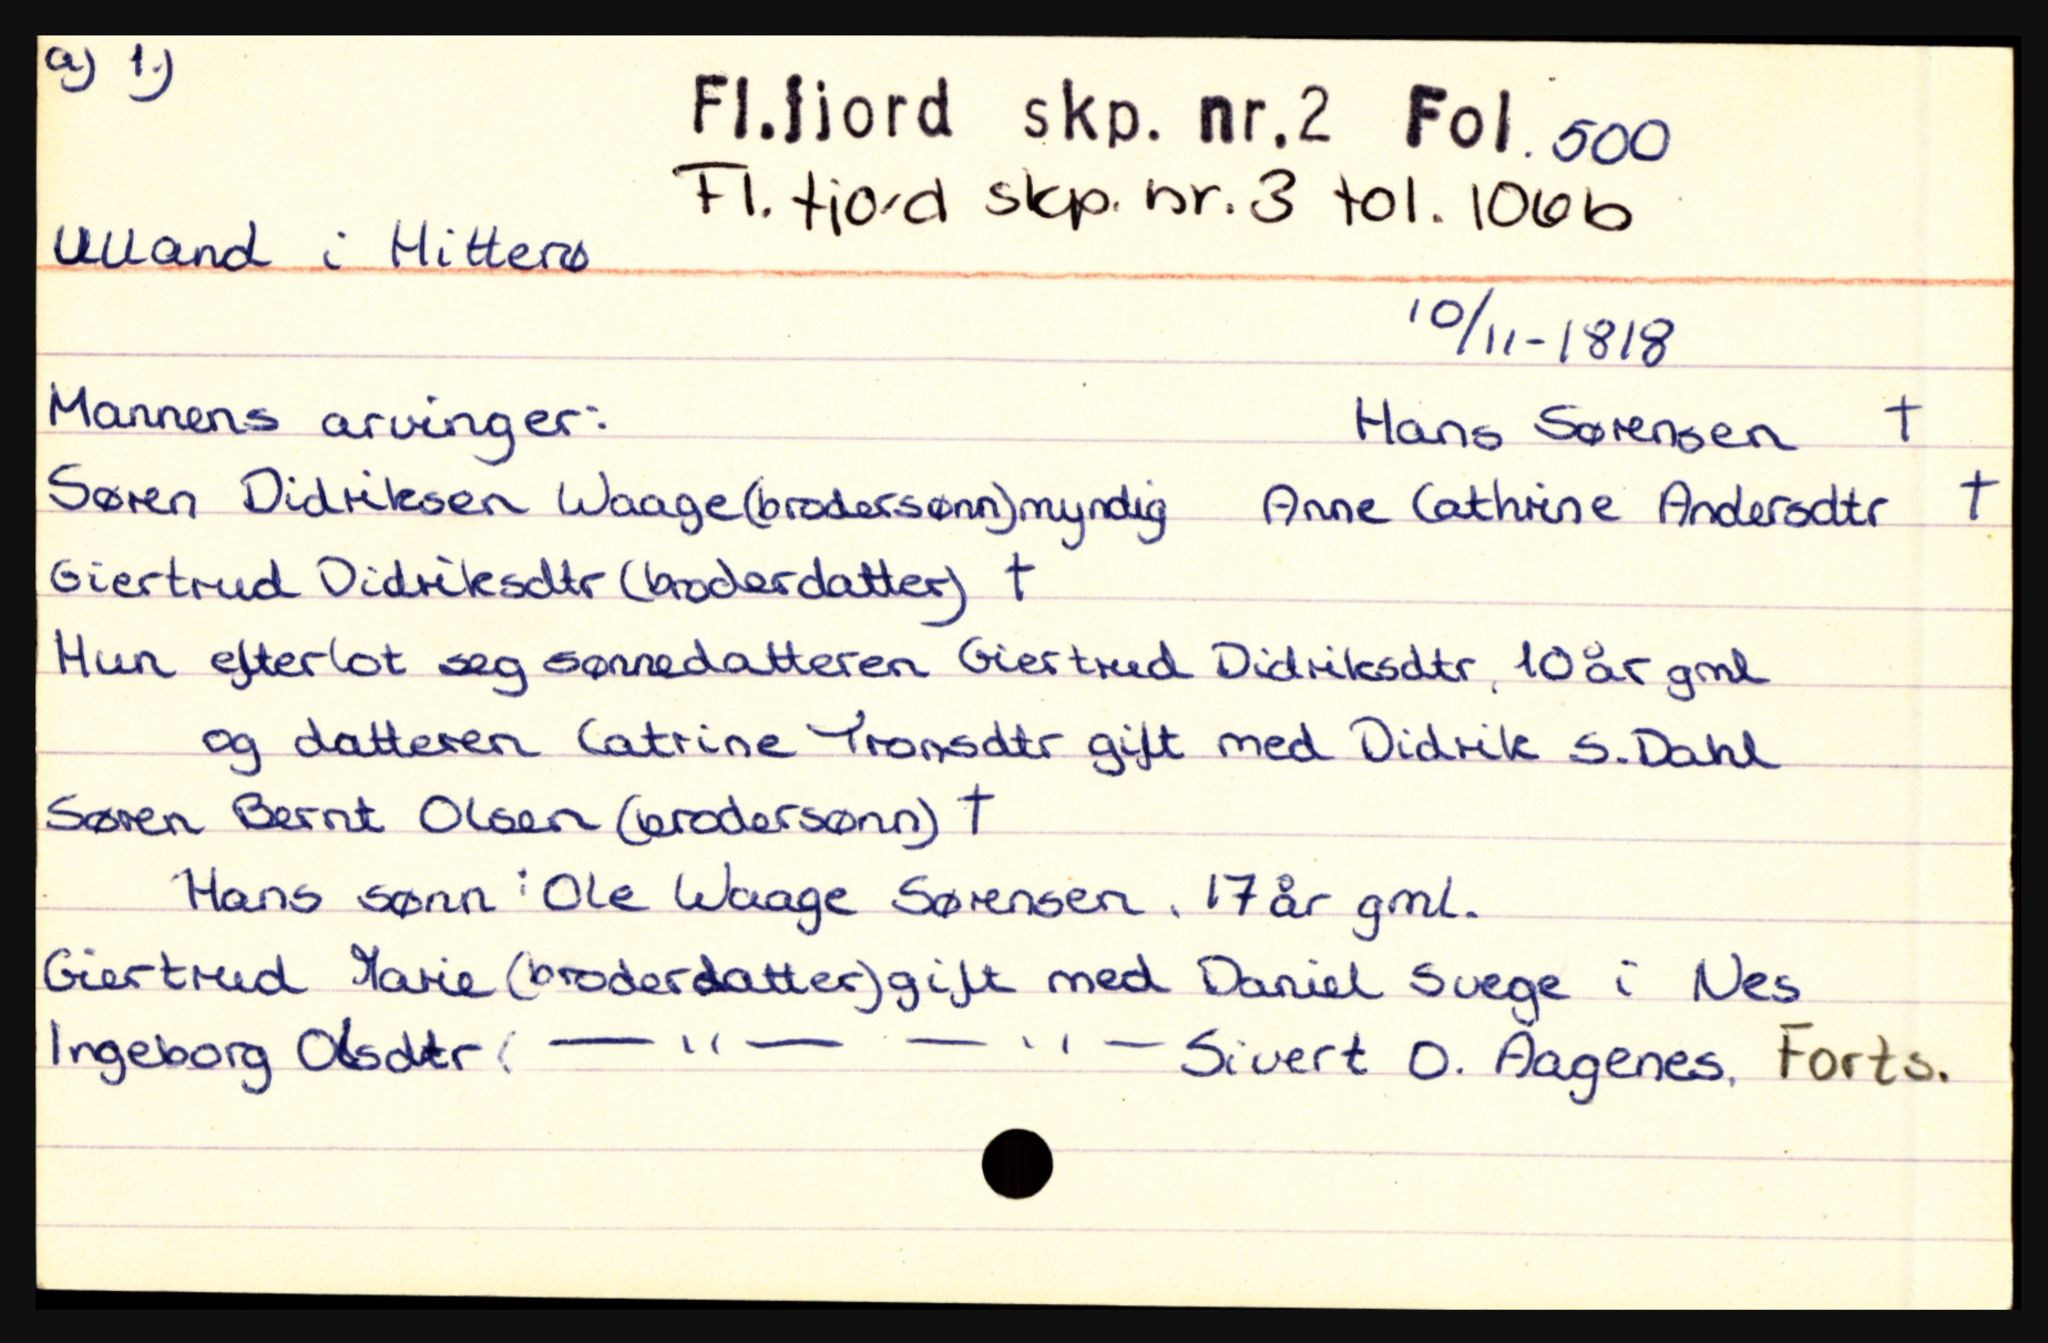 a) 1.)
Fl.fjord skp. nr.2 Fol. 500
Fl. fjord skp. nr. 3 fol. 106b
Ulland i Hitterø
10/11-1818
Mannens arvinger: Hans Sørensen †
Søren Didriksen Waage (brodersønn) myndig Anne Cathrine Andersdtr †
Giertrud Didriksdtr (broderdatter) †
Hun efterlot seg sønnedatteren Giertrud Didriksdtr, 10 år gml
og datteren Catrine Tronsdtr gift med Didrik S. Dahl
Søren Bernt Olsen (brodersønn) †
Hans sønn: Ole Waage Sørensen, 17 år gml.
Giertrud Marie (broderdatter) gift med Daniel Svege i Nes
Ingeborg Olsdtr ( — " — — " — Sivert O. Aagenes, Forts.